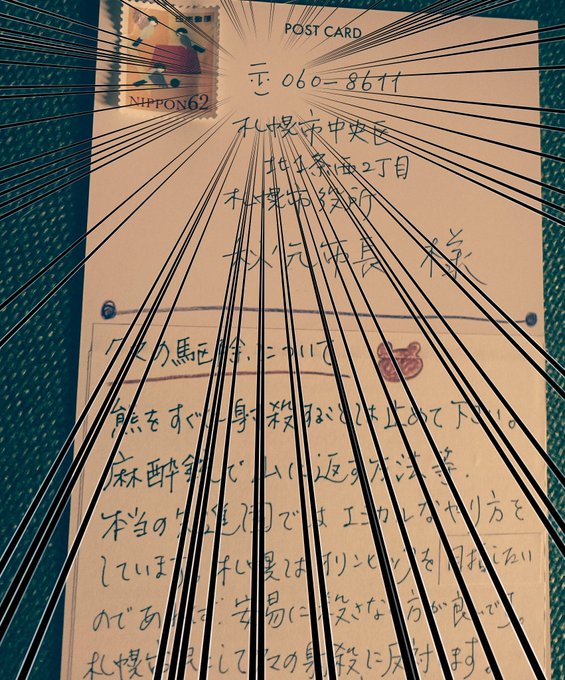 日本郵便
NIPPON 62
POST CARD
〒060-8611
札幌市中央区
北1条西2丁目
札幌市役所
秋元市長 様
クマの駆除について
熊をすぐに射殺することは止めて下さい。
麻酔銃で山に返す方法等、
本当の先進国ではエシカルなやり方を
しています。札幌はオリンピックを目指したい
のであれば、安易に殺さない方が良いです。
札幌市民としてクマの射殺に反対します。